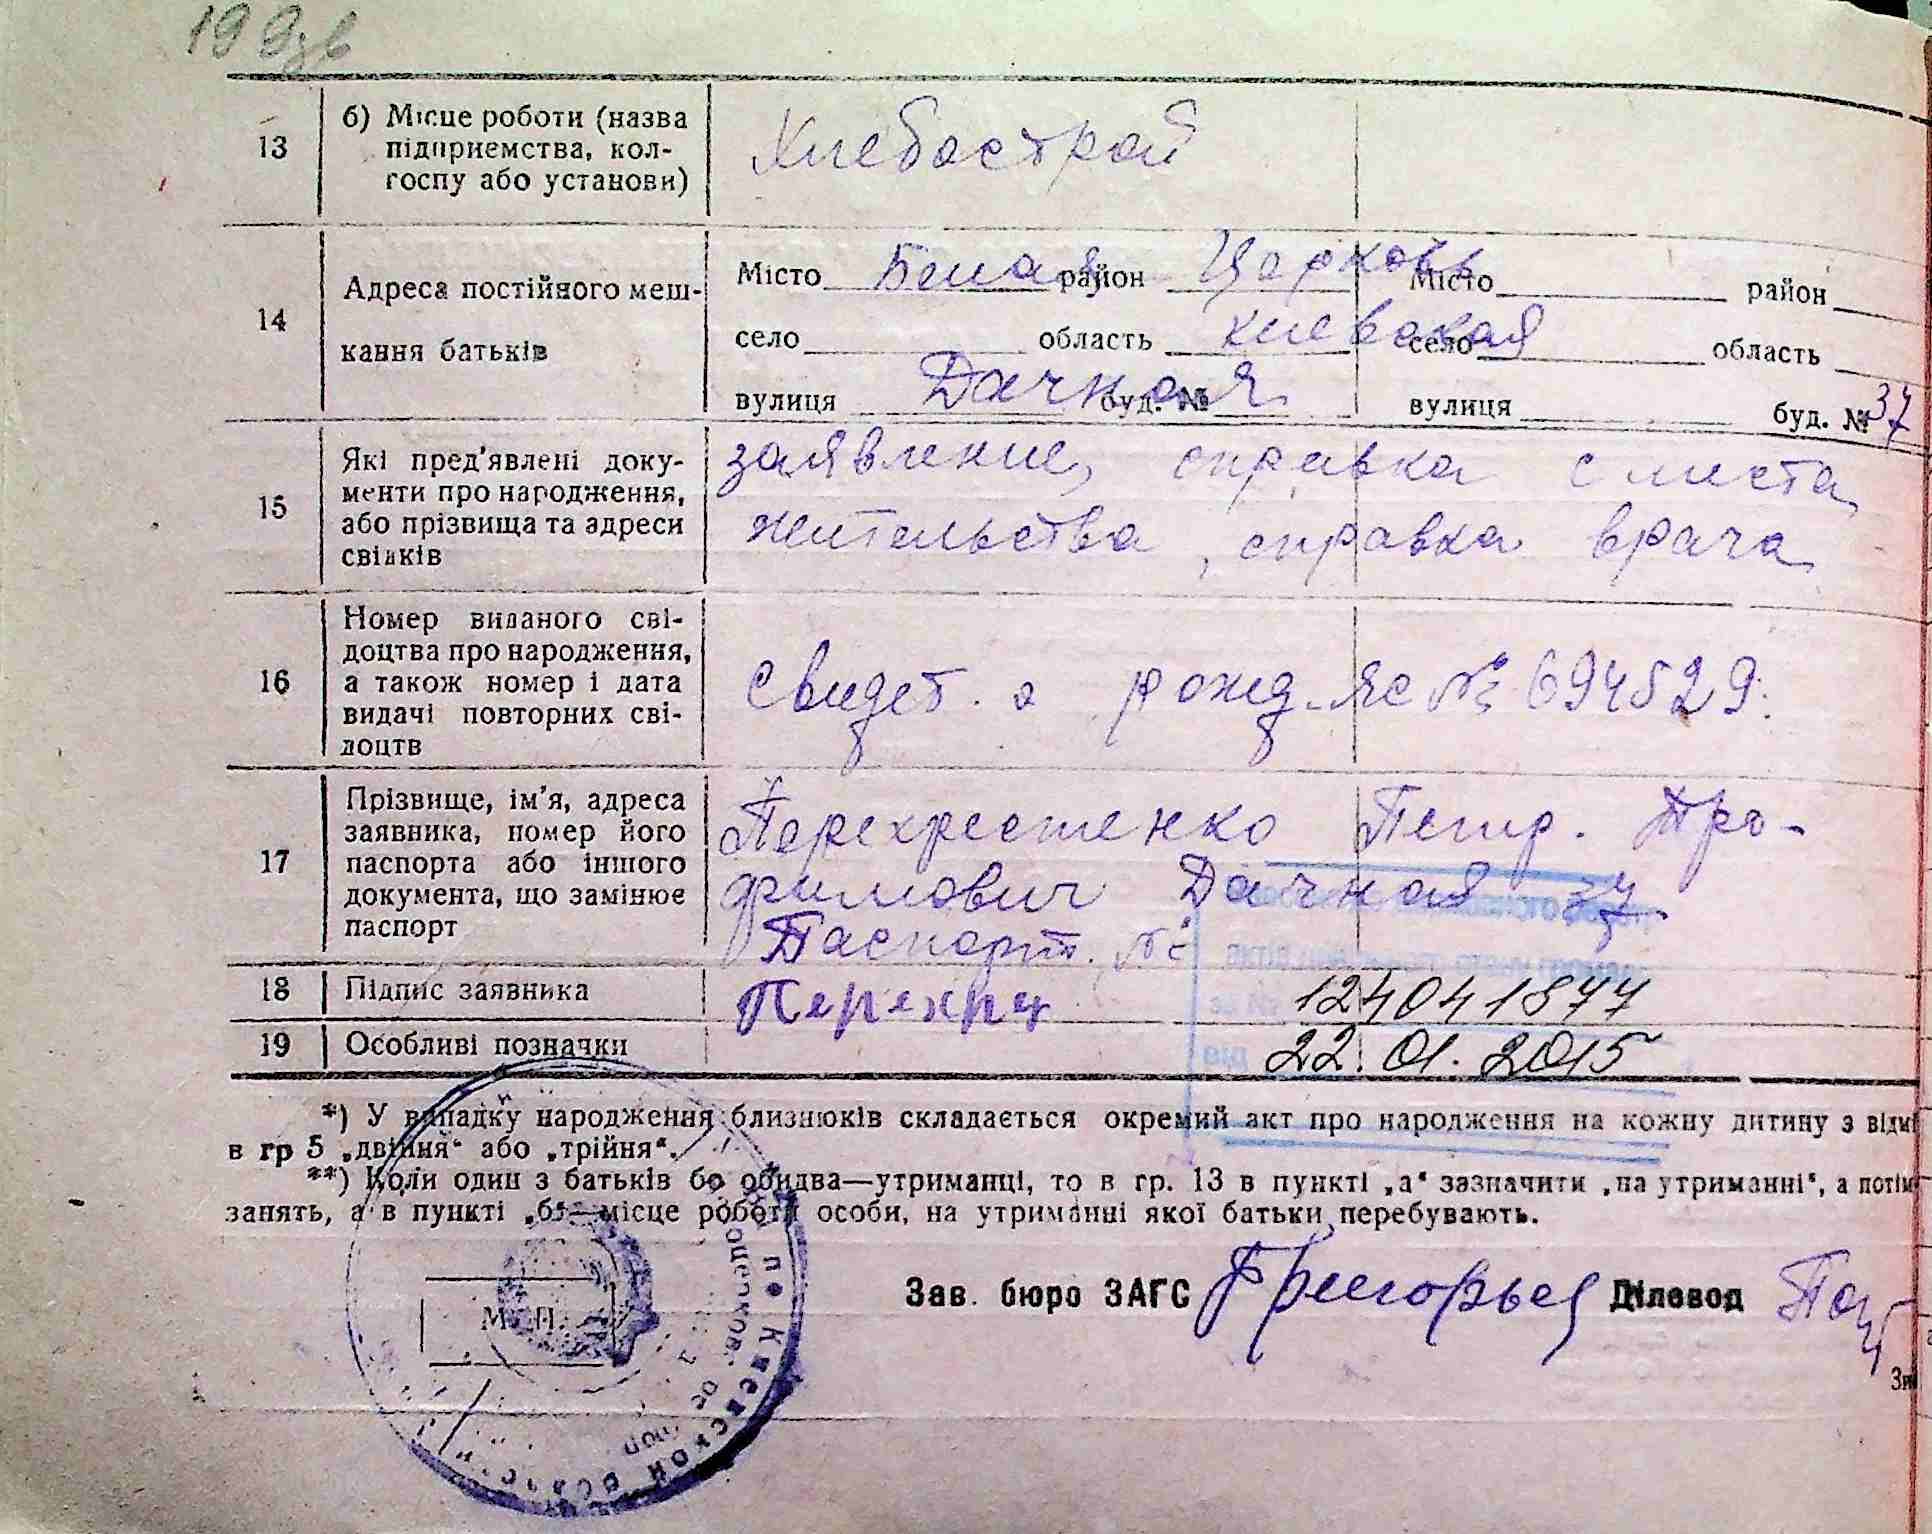 13 б) Місце роботи (назва підприємства, кол-госпу або установи) Хлебострой
14 Адреса постійного меш-кання батьків
Місто Белая район Церковь Місто район
село область Киевская село область
вулиця Дачная буд. № вулиця буд. № 37
15 Які пред'явлені доку-
менти про народження,
або прізвища та адреси
свідків
заявление, справка с места
жительства, справка врача
16 Номер виданого сві-
доцтва про народження,
а також номер і дата
видачі повторних сві-
доцтв
Свидет. о рожд. ЯС № 694529.
17 Прізвище, ім'я, адреса
заявника, номер його
паспорта або іншого
документа, що замінює
паспорт
Перехрестенко Петр. Тро-
фимович Дачная 37.
Паспорт. №
18 Підпис заявника Перехре 124041877
19 Особливі позначки 22.01.2015
*) У випадку народження близнюків складається окремий акт про народження на кожну дитину з відмі
в гр 5 „двійня“ або „трійня“.
**) Коли один з батьків бо обидва—утриманці, то в гр. 13 в пункті „а“ зазначити „на утриманні“, а потім
занять, а в пункті „б“—місце роботи особи, на утриманні якої батьки перебувають.
Зав. бюро ЗАГС Григорьев Діловод
М. П.
по Киевской области